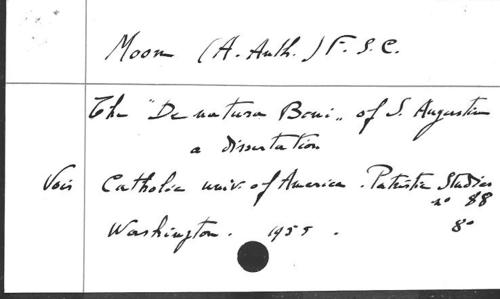 Moon (A. Anth.) F. S. C.
The "De natura Boni" of S. Augustin
a dissertation
Vois Catholic univ. of America. Patristic Studies
n° 88
Washington. 1955. 8°